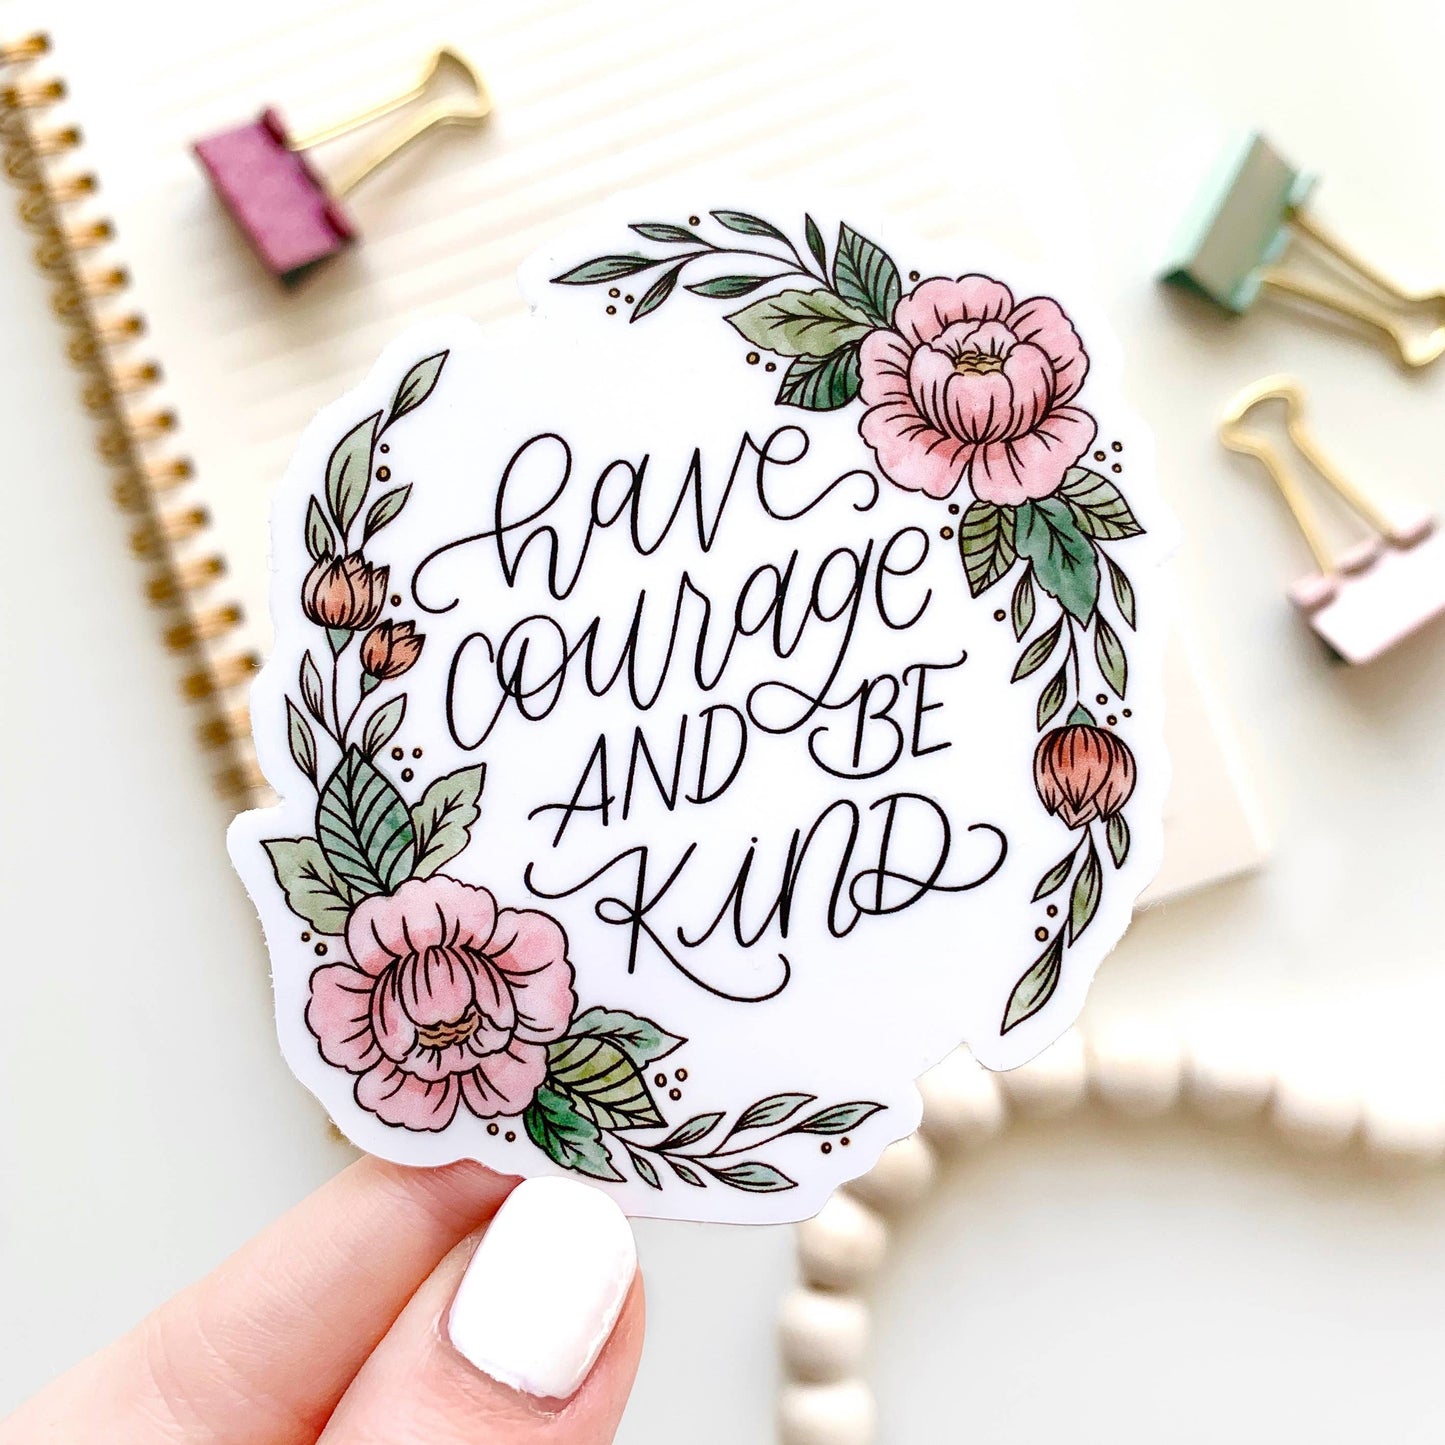 have
courage
AND BE
KiND